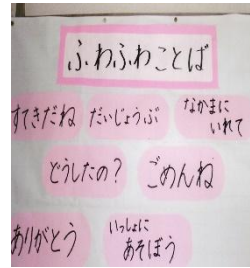 ふわふわことば
すてきだね
だいじょうぶ
なかまに
いれて
どうしたの？
ごめんね
ありがとう
いっしょに
あそぼう